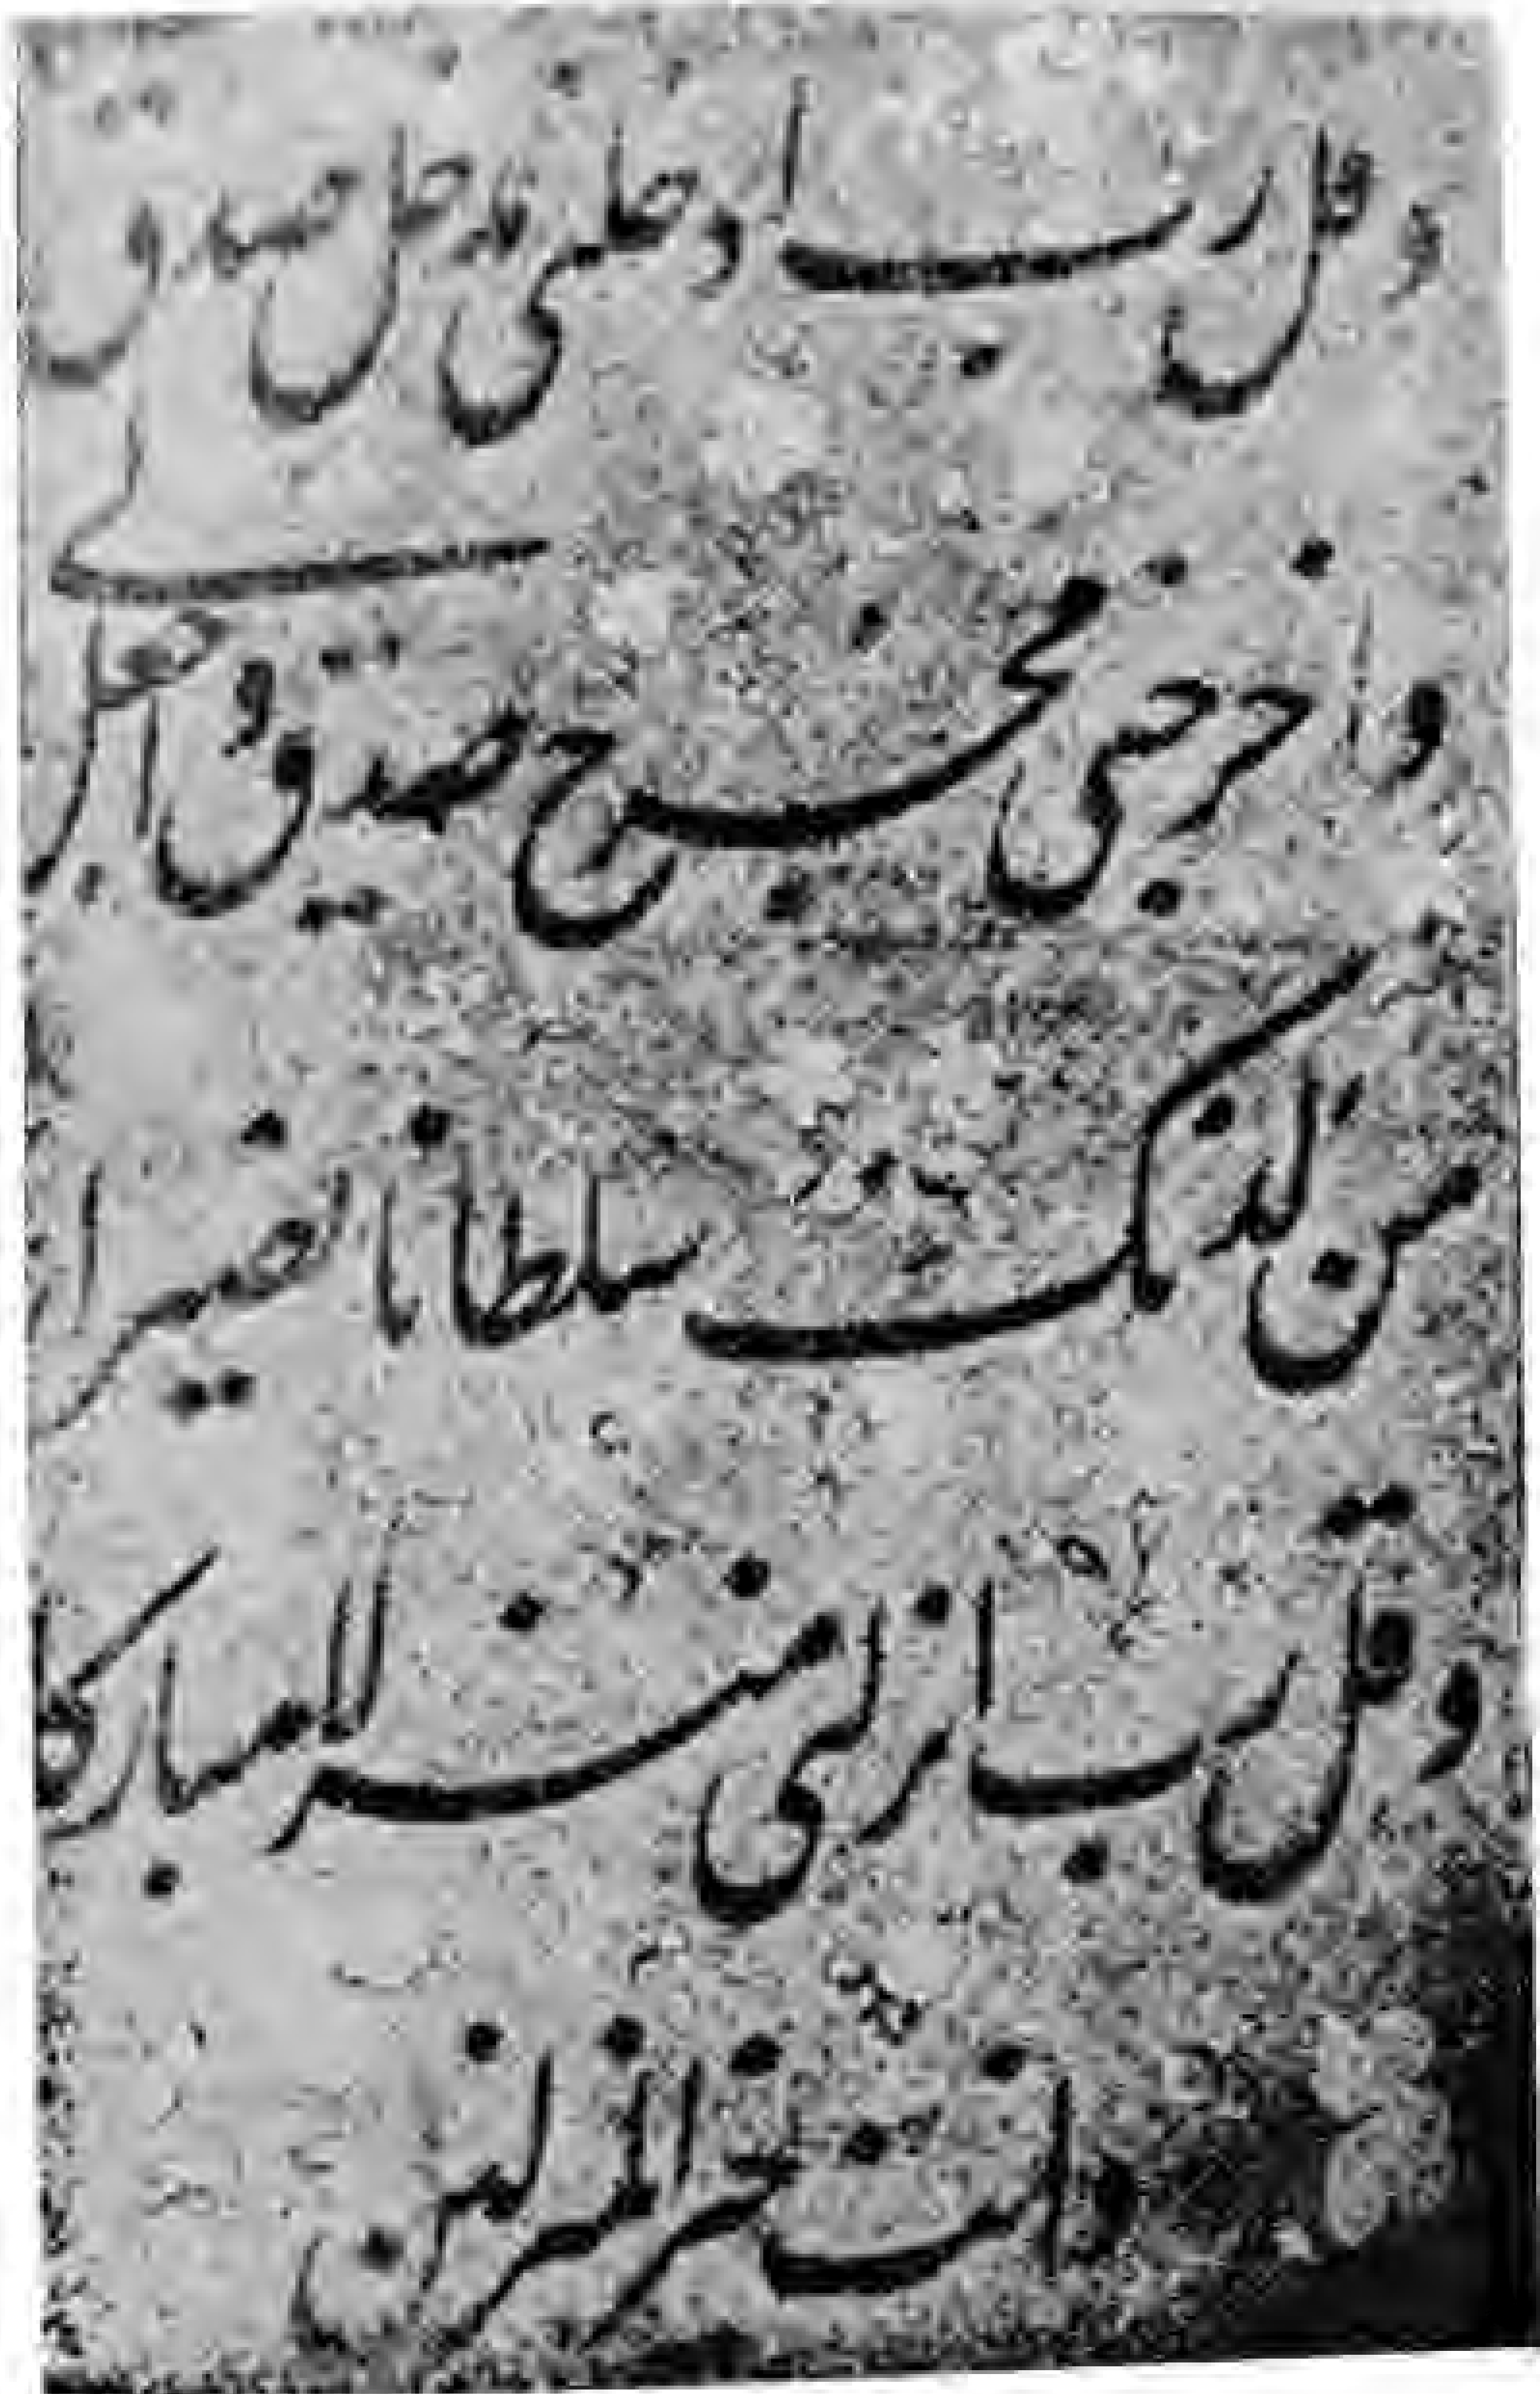 و قل رب ادخلنی مدخل صدق
و اخرجنی مخرج صدق و اجعل لی
من لدنک سلطانا نصیرا
و قل رب انزلنی منزلا مبارکا
و انت خیر المنزلین